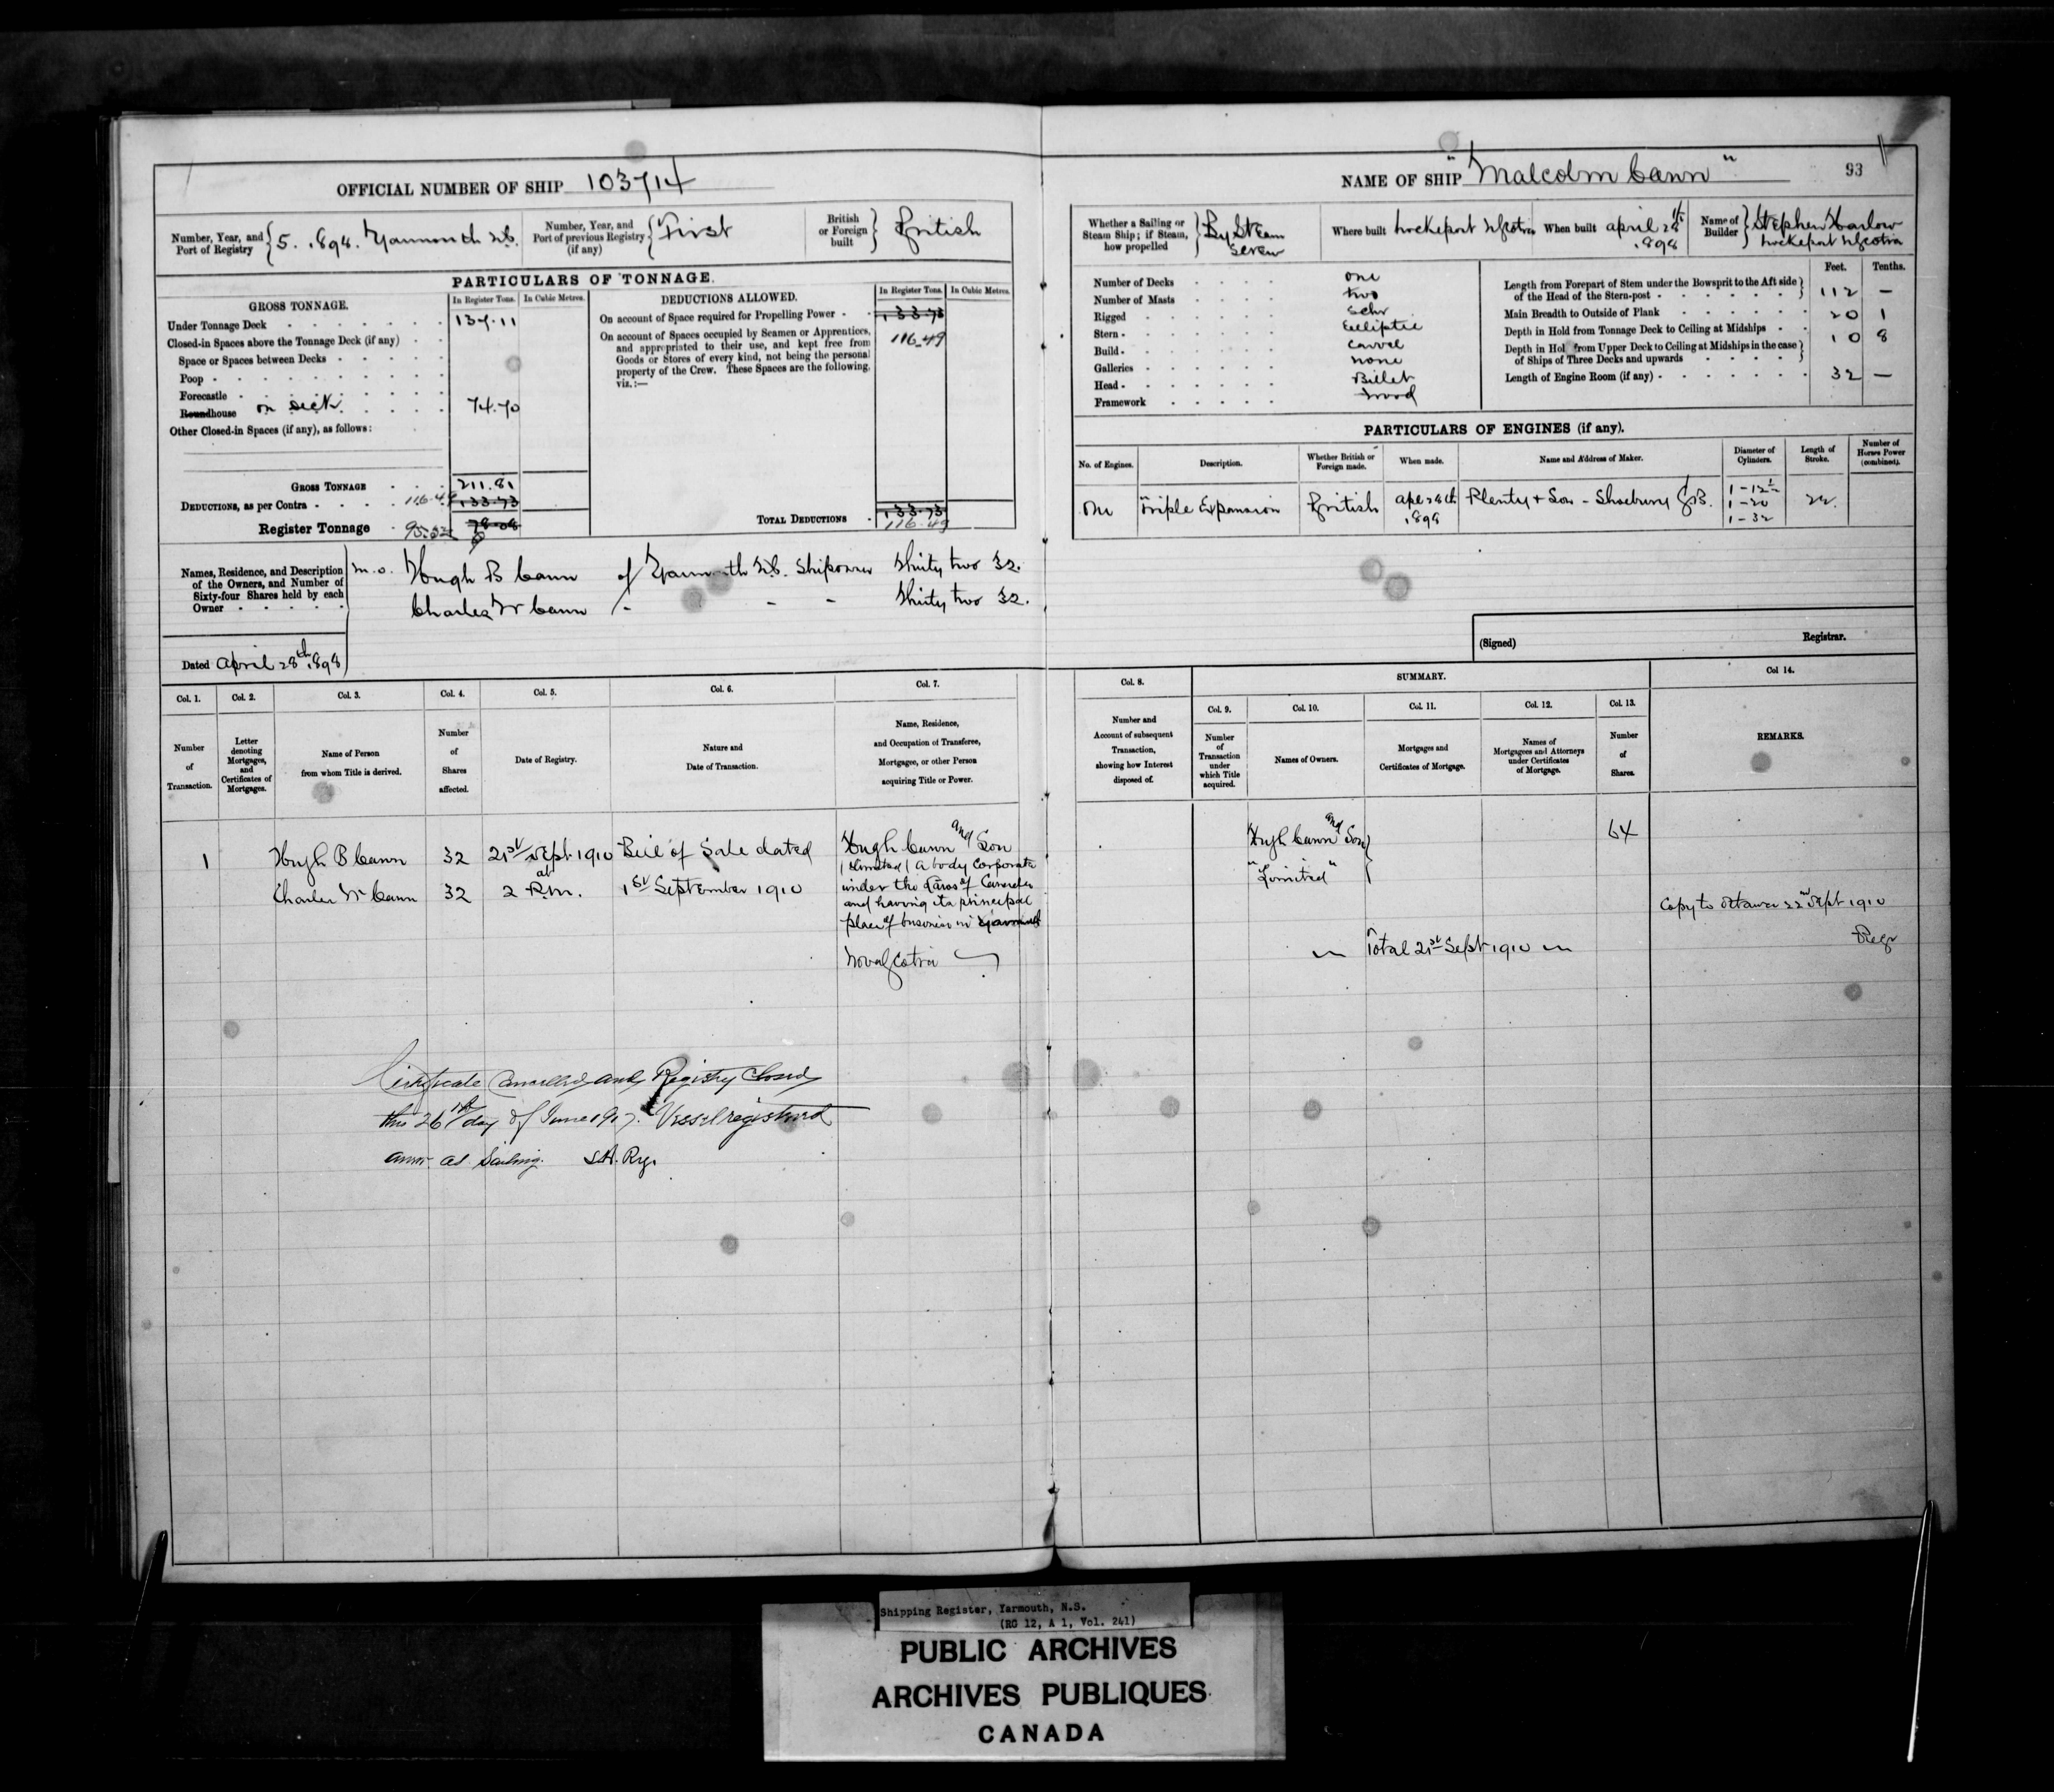 OFFICIAL NUMBER OF SHIP 103714
NAME OF SHIP "Malcolm Cann"
93
Number, Year, and Port of Registry { 5. 1898. Yarmouth N.S.
Number, Year, and Port of previous Registry (if any) { First
British or Foreign built } British
Whether a Sailing or Steam Ship; if Steam, how propelled } By Steam Screw
Where built Lockeport N Scotia
When built April 1898
Name of Builder } Stephen Harlow Lockeport N Scotia
PARTICULARS OF TONNAGE.
GROSS TONNAGE.
In Register Tons. In Cubic Metres.
Under Tonnage Deck 137.11
Closed-in Spaces above the Tonnage Deck (if any)
Space or Spaces between Decks
Poop
Forecastle
Roundhouse on deck. 74.70
Other Closed-in Spaces (if any), as follows:
GROSS TONNAGE 211.81
DEDUCTIONS, as per Contra 116.49 133.73
Register Tonnage 95.32 78.08
DEDUCTIONS ALLOWED.
In Register Tons. In Cubic Metres.
On account of Space required for Propelling Power 133.73
On account of Spaces occupied by Seamen or Apprentices, 116.49
and appropriated to their use, and kept free from
Goods or Stores of every kind, not being the personal
property of the Crew. These Spaces are the following,
viz.:—
TOTAL DEDUCTIONS 133.73
116.49
Number of Decks one
Number of Masts two
Rigged Schr
Stern Elliptic
Build Carvel
Galleries none
Head Billet
Framework Wood
Feet. Tenths.
Length from Forepart of Stem under the Bowsprit to the Aft side of the Head of the Stern-post 112 —
Main Breadth to Outside of Plank 20 1
Depth in Hold from Tonnage Deck to Ceiling at Midships 10 8
Depth in Hold from Upper Deck to Ceiling at Midships in the case of Ships of Three Decks and upwards
Length of Engine Room (if any) 32 —
PARTICULARS OF ENGINES (if any).
No. of Engines. Description. Whether British or Foreign made. When made. Name and Address of Maker. Diameter of Cylinders. Length of Stroke. Number of Horses Power (combined).
One Triple Expansion British 1898 Plenty & Son - G.B. 1 - 12½ 22.
1 - 20
1 - 32
Names, Residence, and Description of the Owners, and Number of Sixty-four Shares held by each Owner
m.o. Hugh B Cann of Yarmouth N.S. Shipowner Thirty two 32.
Charles W Cann - - - Thirty two 32.
Dated April 28th 1898
(Signed) Registrar.
Col. 1. Col. 2. Col. 3. Col. 4. Col. 5. Col. 6. Col. 7. Col. 8. SUMMARY. Col 14.
Col. 9. Col. 10. Col. 11. Col. 12. Col. 13.
Number of Transaction.
Letter denoting Mortgages, and Certificates of Mortgages.
Name of Person from whom Title is derived.
Number of Shares affected.
Date of Registry.
Nature and Date of Transaction.
Name, Residence, and Occupation of Transferee, Mortgagee, or other Person acquiring Title or Power.
Number and Account of subsequent Transaction, showing how Interest disposed of.
Number of Transaction under which Title acquired.
Names of Owners.
Mortgages and Certificates of Mortgage.
Names of Mortgagees and Attorneys under Certificates of Mortgage.
Number of Shares.
REMARKS.
1 Hugh B Cann 32 21st Sept. 1910 Bill of Sale dated
Charles W Cann 32 at 2 P.m. 1st September 1910
Hugh Cann and Son
(Limited) A body Corporate
under the Laws of Canada
and having its principal
place of business in Yarmouth
Nova Scotia
Hugh Cann and Son 64
"Limited"
Total 21st Sept 1910
Copy to Ottawa 22nd Sept 1910
Regr
Certificate Cancelled and Registry Closed
this 26th day of June 1917. Vessel registered
anew as Sailing. Rgr.
Shipping Register, Yarmouth, N.S.
(RG 12, A 1, Vol. 241)
PUBLIC ARCHIVES
ARCHIVES PUBLIQUES
CANADA